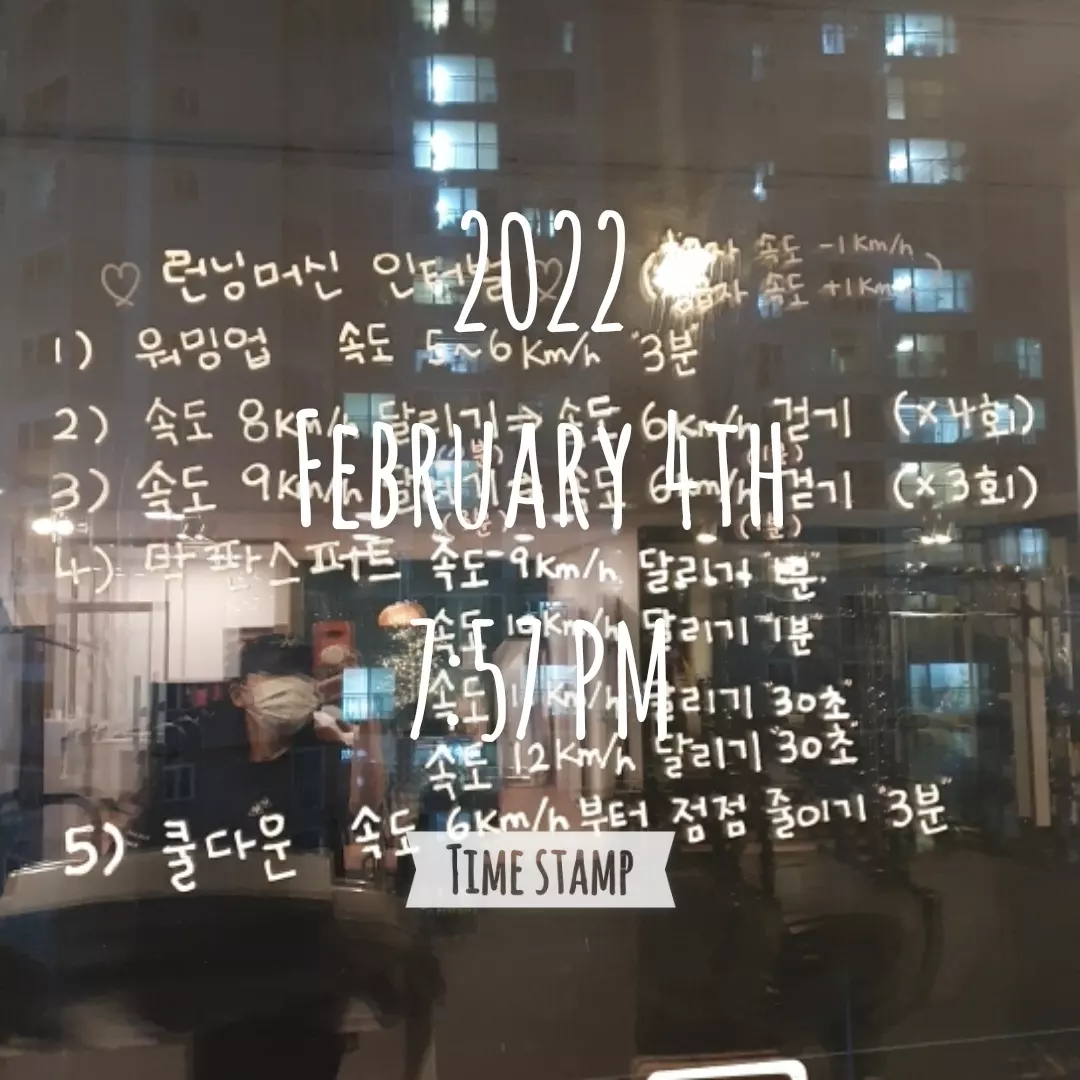 2022
FEBRUARY 4TH
7:57 PM
TIME STAMP
♡ 런닝머신 인터벌 ♡
속도 -1km/h
속도 +1km
1) 워밍업 속도 5~6km/h "3분"
2) 속도 8km/h 달리기 → 속도 6km/h 걷기 (×4회)
3) 속도 9km/h 달리기 → 속도 6km/h 걷기 (×3회)
(1분)
4) 막판스퍼트 속도 9km/h 달리기
속도 km/h 달리기 "1분"
속도 km/h 달리기 "30초"
속도 12km/h 달리기 "30초"
5) 쿨다운 속도 6km/h부터 점점 줄이기 "3분"